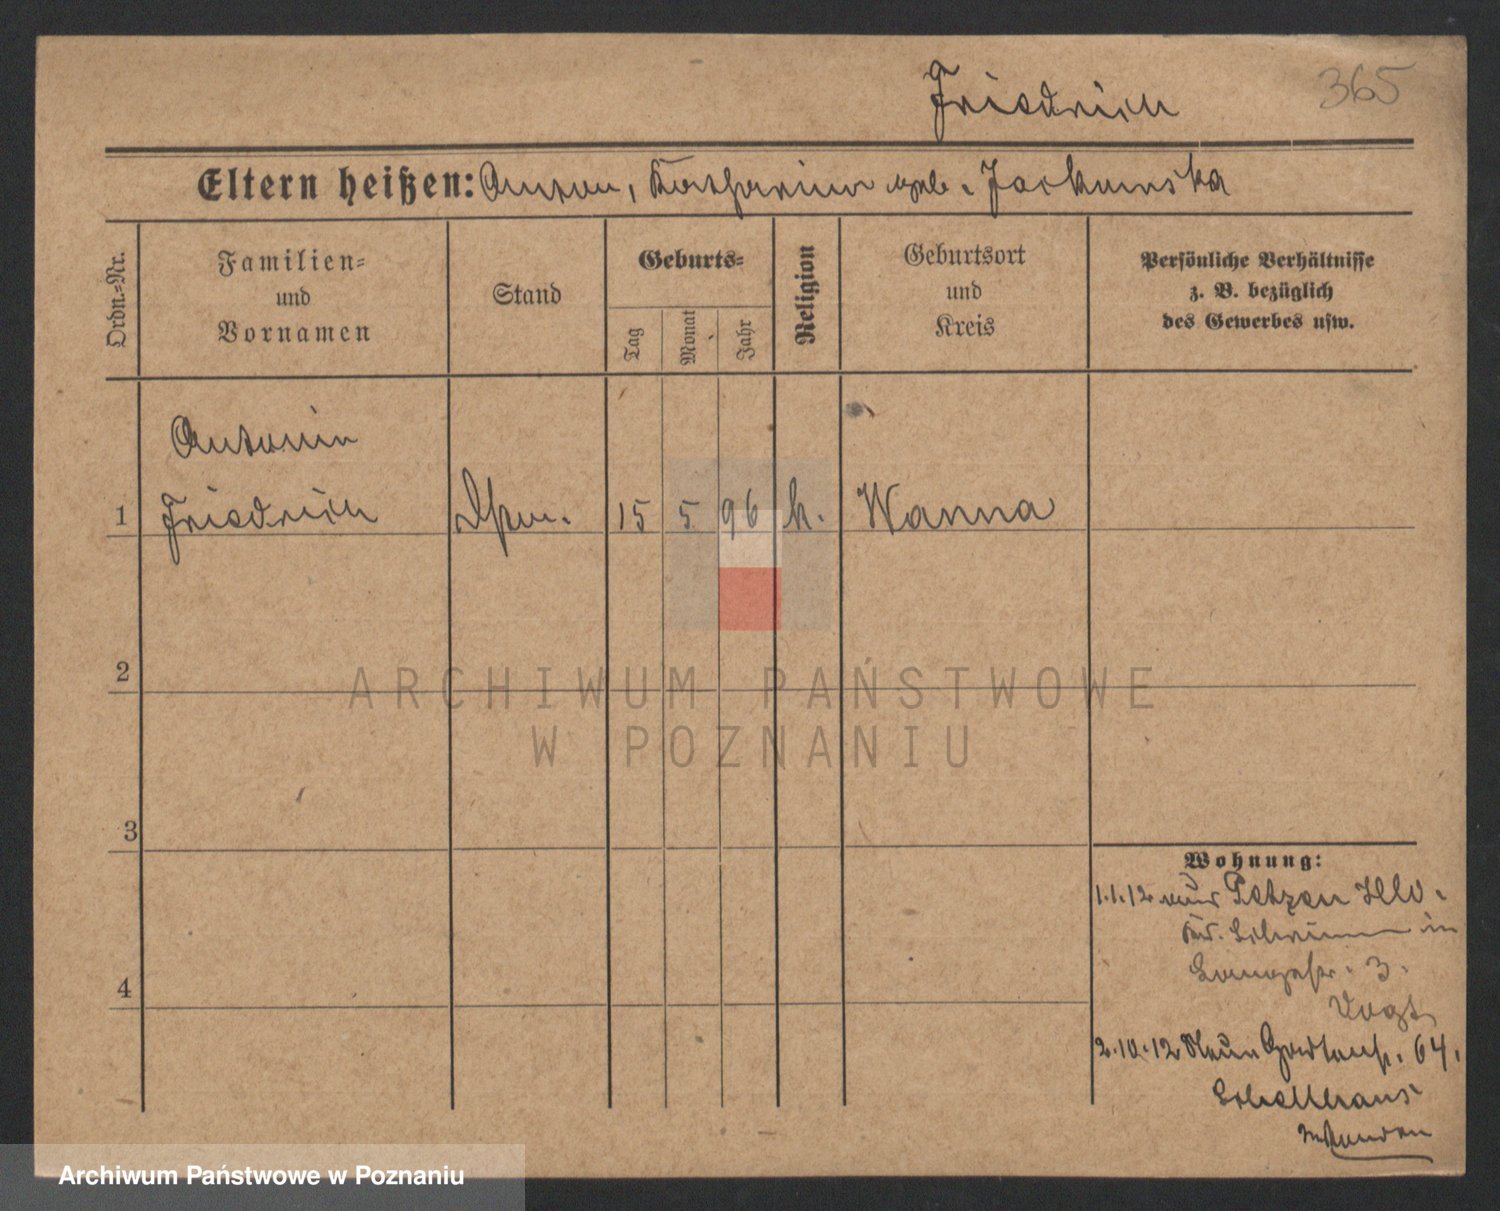 Friedrich 365
Eltern heißen: Anton, Katharina geb. Jackowska
Ordn.=Nr.
Familien=
und
Vornamen
Stand
Geburts=
Tag
Monat
Jahr
Religion
Geburtsort
und
Kreis
Persönliche Verhältnisse
z. B. bezüglich
des Gewerbes usw.
Antonie
1 Friedrich 15 5 96 k. Wanna
2
3
4
Wohnung:
1.1.12
in
3.
Vogt
2.10.12 Neue Gartenstr. 64.
ARCHIWUM PAŃSTWOWE
W POZNANIU
Archiwum Państwowe w Poznaniu